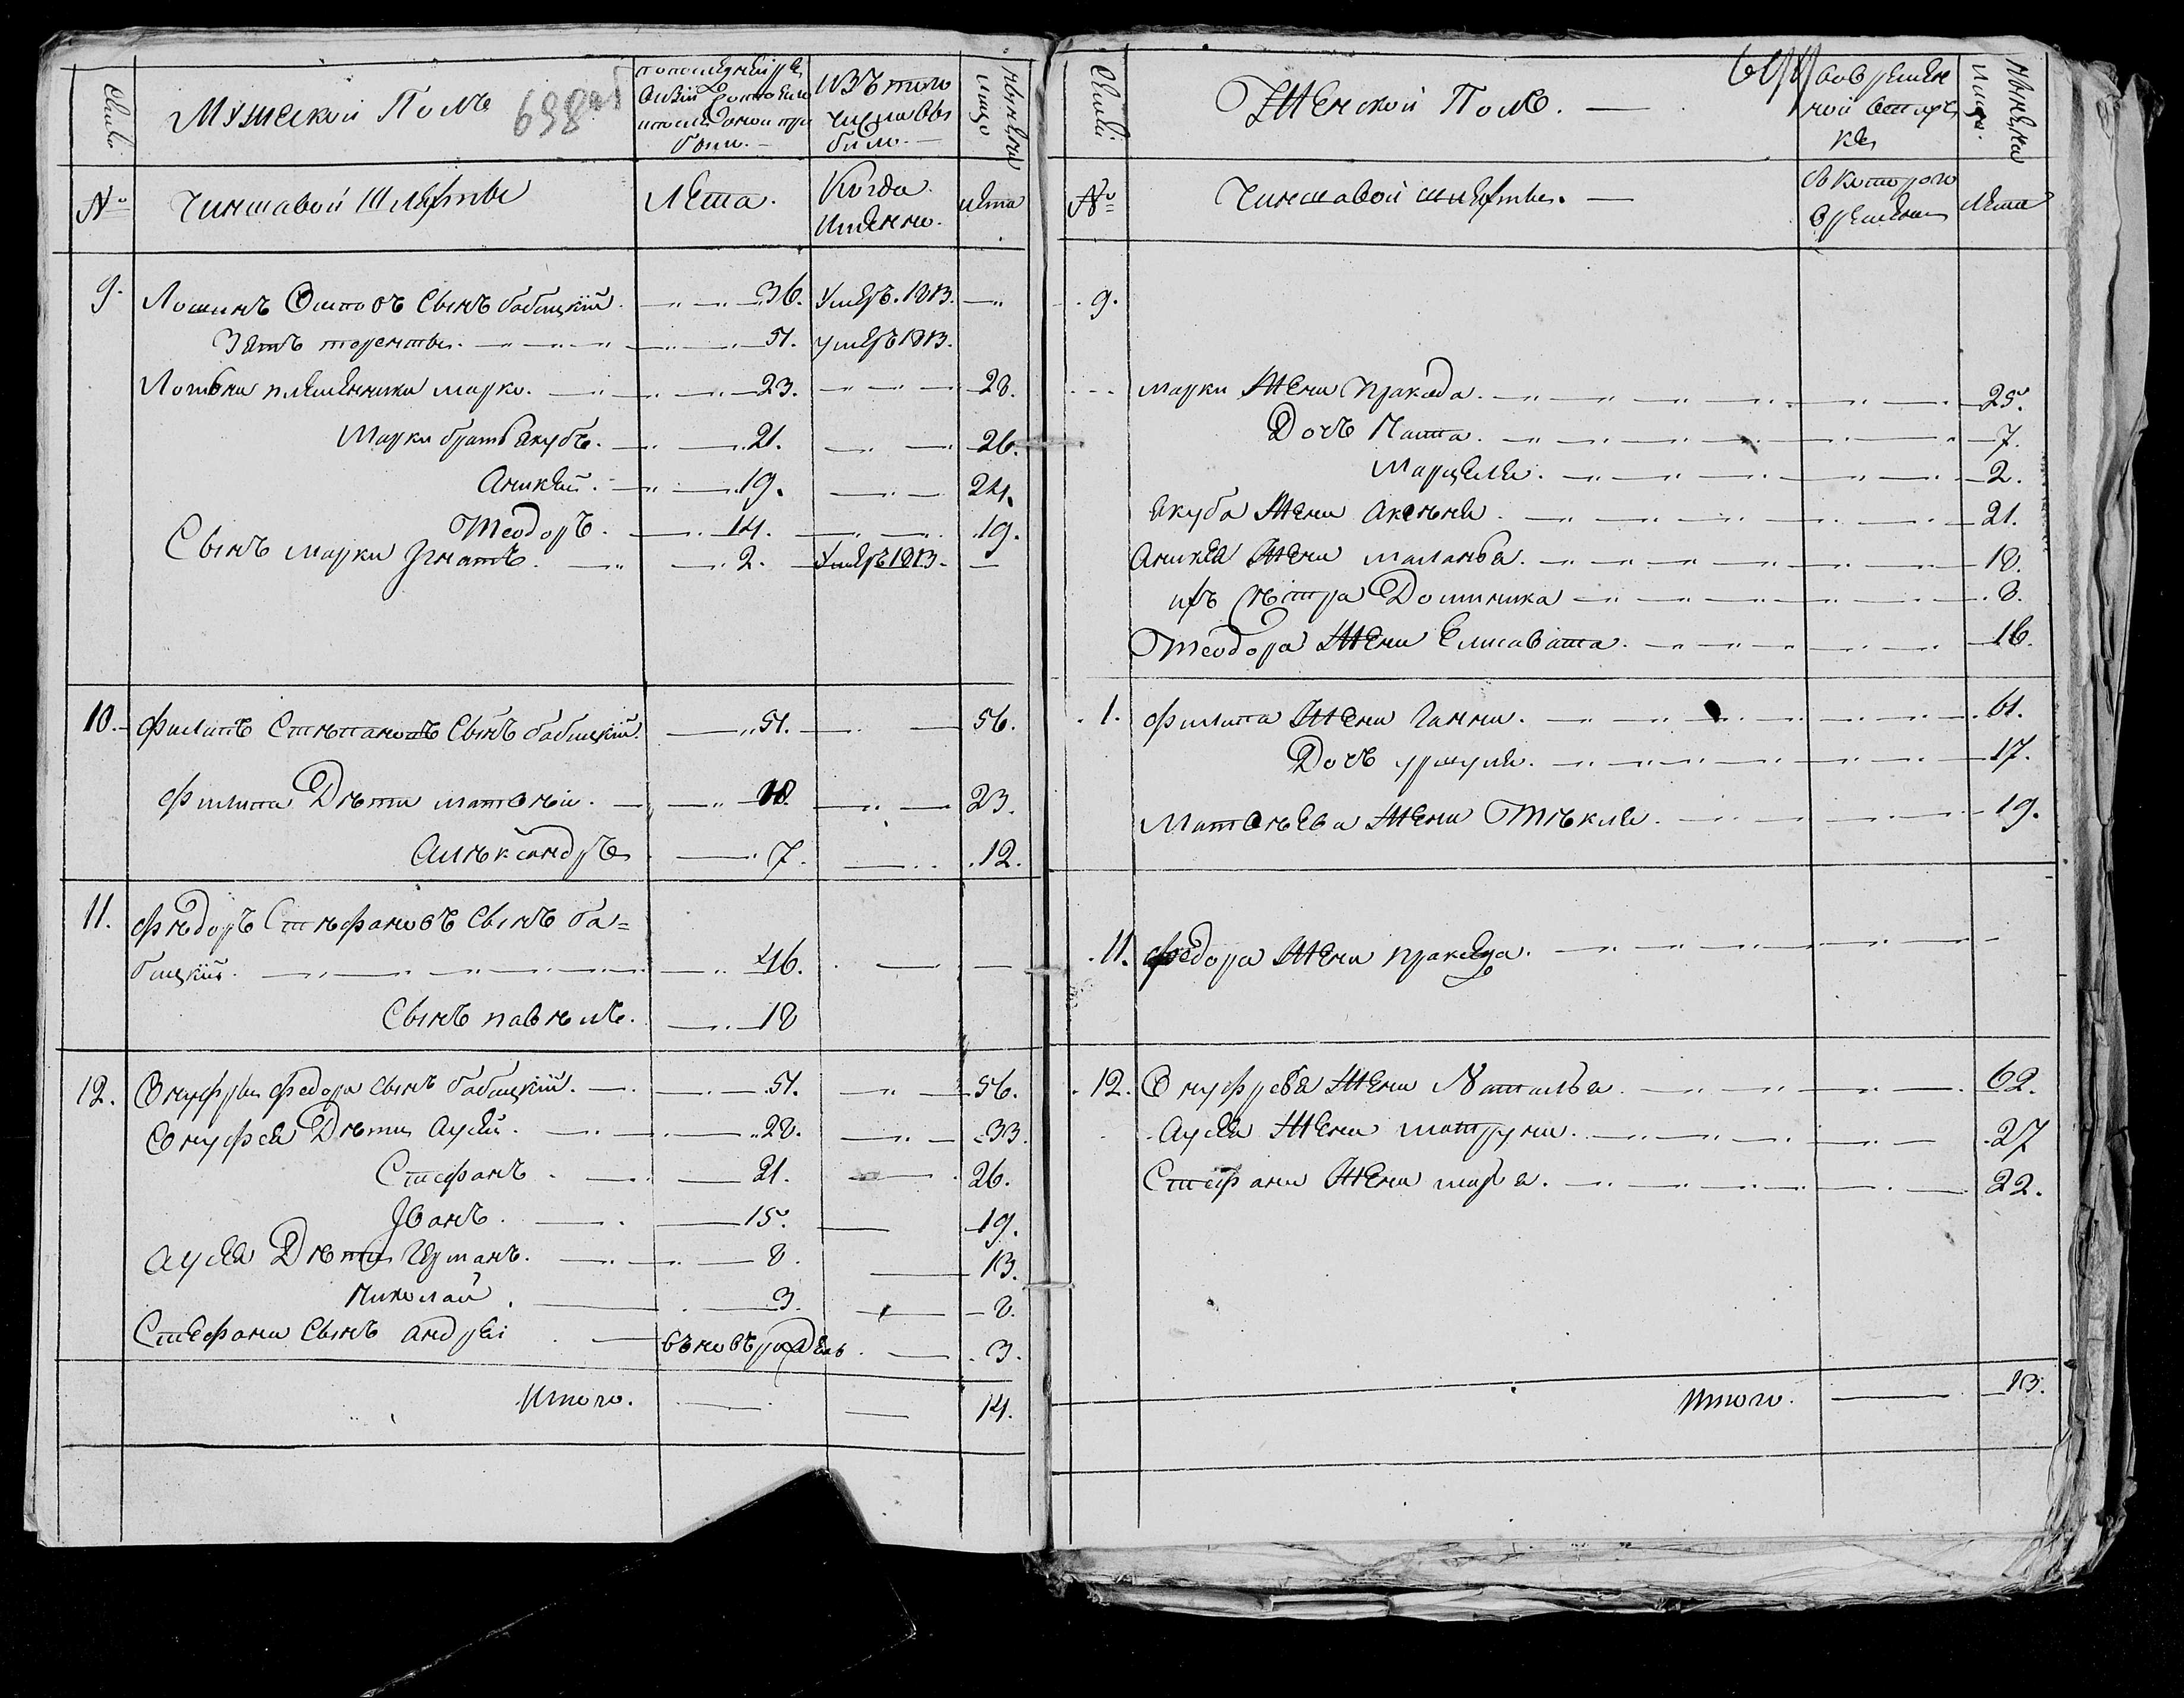 Семья
Мужеской Полъ
698 об
по последней ре
визіи состояло
и после оной при
было.
Изъ того
числа вы
было.
Ныне на
лицо
№
Чиншавой Шляхты
Лета.
Когда
Именно.
лета
9. Лошинъ Осиповъ Сынъ бабицкій. 36. Умеръ. 1813.
Зять теренты. 51. умеръ 1813.
племенники марко. 23. 28.
Марки братъ Якубъ. 21. 26.
Аникей. 19. 24.
Теодоръ. 14. 19.
Сынъ марки Игнатъ. 2. Умеръ 1813.
10. Филипъ Степановъ Сынъ бабицкій. 51. 56.
Филипа Дети матвей. 18. 23.
Александръ 7. 12.
11. Федоръ Стефановъ Сынъ ба=
бицкій. 46.
Сынъ павелъ. 18
12. Онуфры Федора Сынъ бабицкій. 51. 56.
Онуфрея Дети Аусей. 28. 33.
Стефанъ. 21. 26.
Иванъ. 15. 19.
Аусея Дети Германъ. 8. 13.
Николай. 3. 8.
Стефана Сынъ андрей вновь рожденъ. 3.
Итого. 14.
Семьи
Женской Полъ.
699
во времен
ной отлуч
ке
Ныне на
лицо.
№
Чиншавой шляхты.
Съ котораго
времени
Лета
9.
марки Жена Пракседа. 25.
Дочь Наста. 7.
Марцеля. 2.
Якуба Жена Аксеня. 21.
Аникея Жена Маланья. 18.
ихъ Сестра Доминика 8.
Теодора Жена Елисавета. 16.
1. Филипа Жена Ганна. 61.
Дочь уршуля. 17.
Матвеева Жена Текля. 19.
11. Федора Жена пракседа.
12. Онуфрея Жена Наталья. 62.
Аусея Жена матруна. 27
Стефана Жена марья. 22.
Итого. 13.